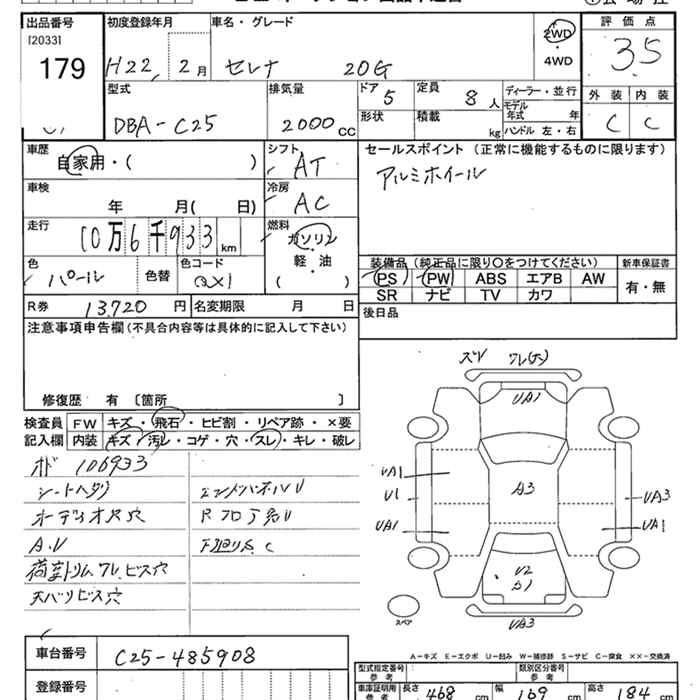 出品番号 初度登録年月 車名・グレード 評価点
[2033]
179 H22, 2月 セレナ 20G 2WD・4WD 3.5
型式 排気量 ドア 5 定員 8人 ディーラー・並行 外装 内装
DBA-C25 2000cc 形状 積載 kg モデル年式 年 C C
ハンドル 左・右
車歴 シフト セールスポイント(正常に機能するものに限ります)
自家用・( ) AT アルミホイール
車検 冷房
年 月( 日) AC
走行 燃料
10万6千933km ガソリン
軽・油
( )
色 色替 色コード 装備品(純正品に限り○をつけてください) 新車保証書
パール QX1 PS PW ABS エアB AW 有・無
SR ナビ TV カワ
R券 13,720円 名変期限 月 日 後日品
注意事項申告欄(不具合内容等は具体的に記入して下さい)
修復歴 有〔箇所 〕
検査員記入欄 FW キズ・飛石・ヒビ割・リペア跡・×要
内装 キズ・汚レ・コゲ・穴・スレ・キレ・破レ
オド 106933
シートヘタリ エンドパネルU
オーディオ欠穴
A.U 下廻りS.C
荷室トリムワレ、ビス穴
天バリビス穴
ワレ(大)
UA1
UA1
U1 A3 UA3
UA1 UA1
U2
UA3
スペア
A-キズ E-エクボ U-凹 W-補修跡 S-サビ C-腐食 ××-交換済
車台番号 C25-485908
登録番号
型式指定番号 参考 類別区分番号 参考
車庫証明用 参考 長さ 468cm 幅 169cm 高さ 184cm